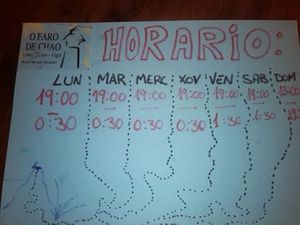 O FARO
DE CHAO
HORARIO:
LUN MAR MERC XOV VEN SAB DOM
19:00 19:00 19:00 19:00 19:00 19:00
0:30 0:30 0:30 0:30 1:30 1:30